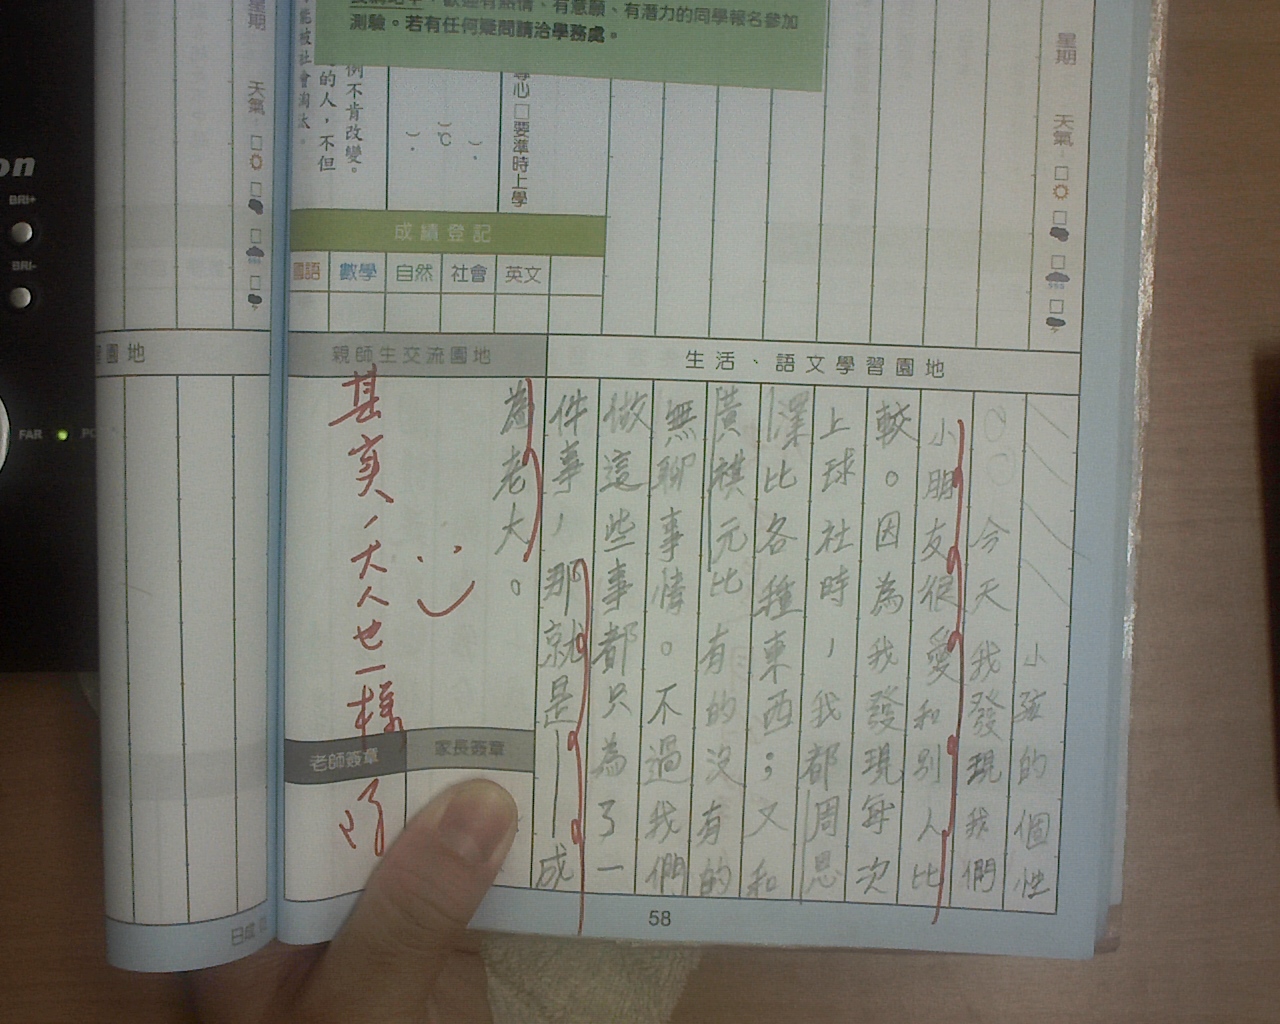 歡迎有熱情、有意願、有潛力的同學報名參加
測驗。若有任何疑問請洽學務處。
星期
天氣
星期
天氣
例不肯改變。
的人,不但
能被社會淘汰。
℃
專心 □要準時上學
成績登記
國語 數學 自然 社會 英文
園地
親師生交流園地
生活、語文學習園地
小孩的個性
今天我發現我們
小朋友很愛和別人比
較。因為我發現每次
上球社時,我都周恩
澤比各種東西;又和
黃祺元比有的沒有的
無聊事情。不過我們
做這些事都只為了一
件事,那就是——成
為老大。
甚實,大人也一樣
老師簽章
家長簽章
58
BRI+
BRI-
FAR
on